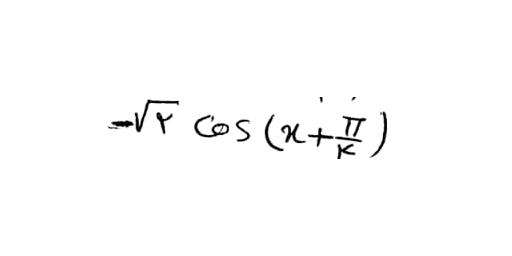 -√۲ cos(x+π/۴)